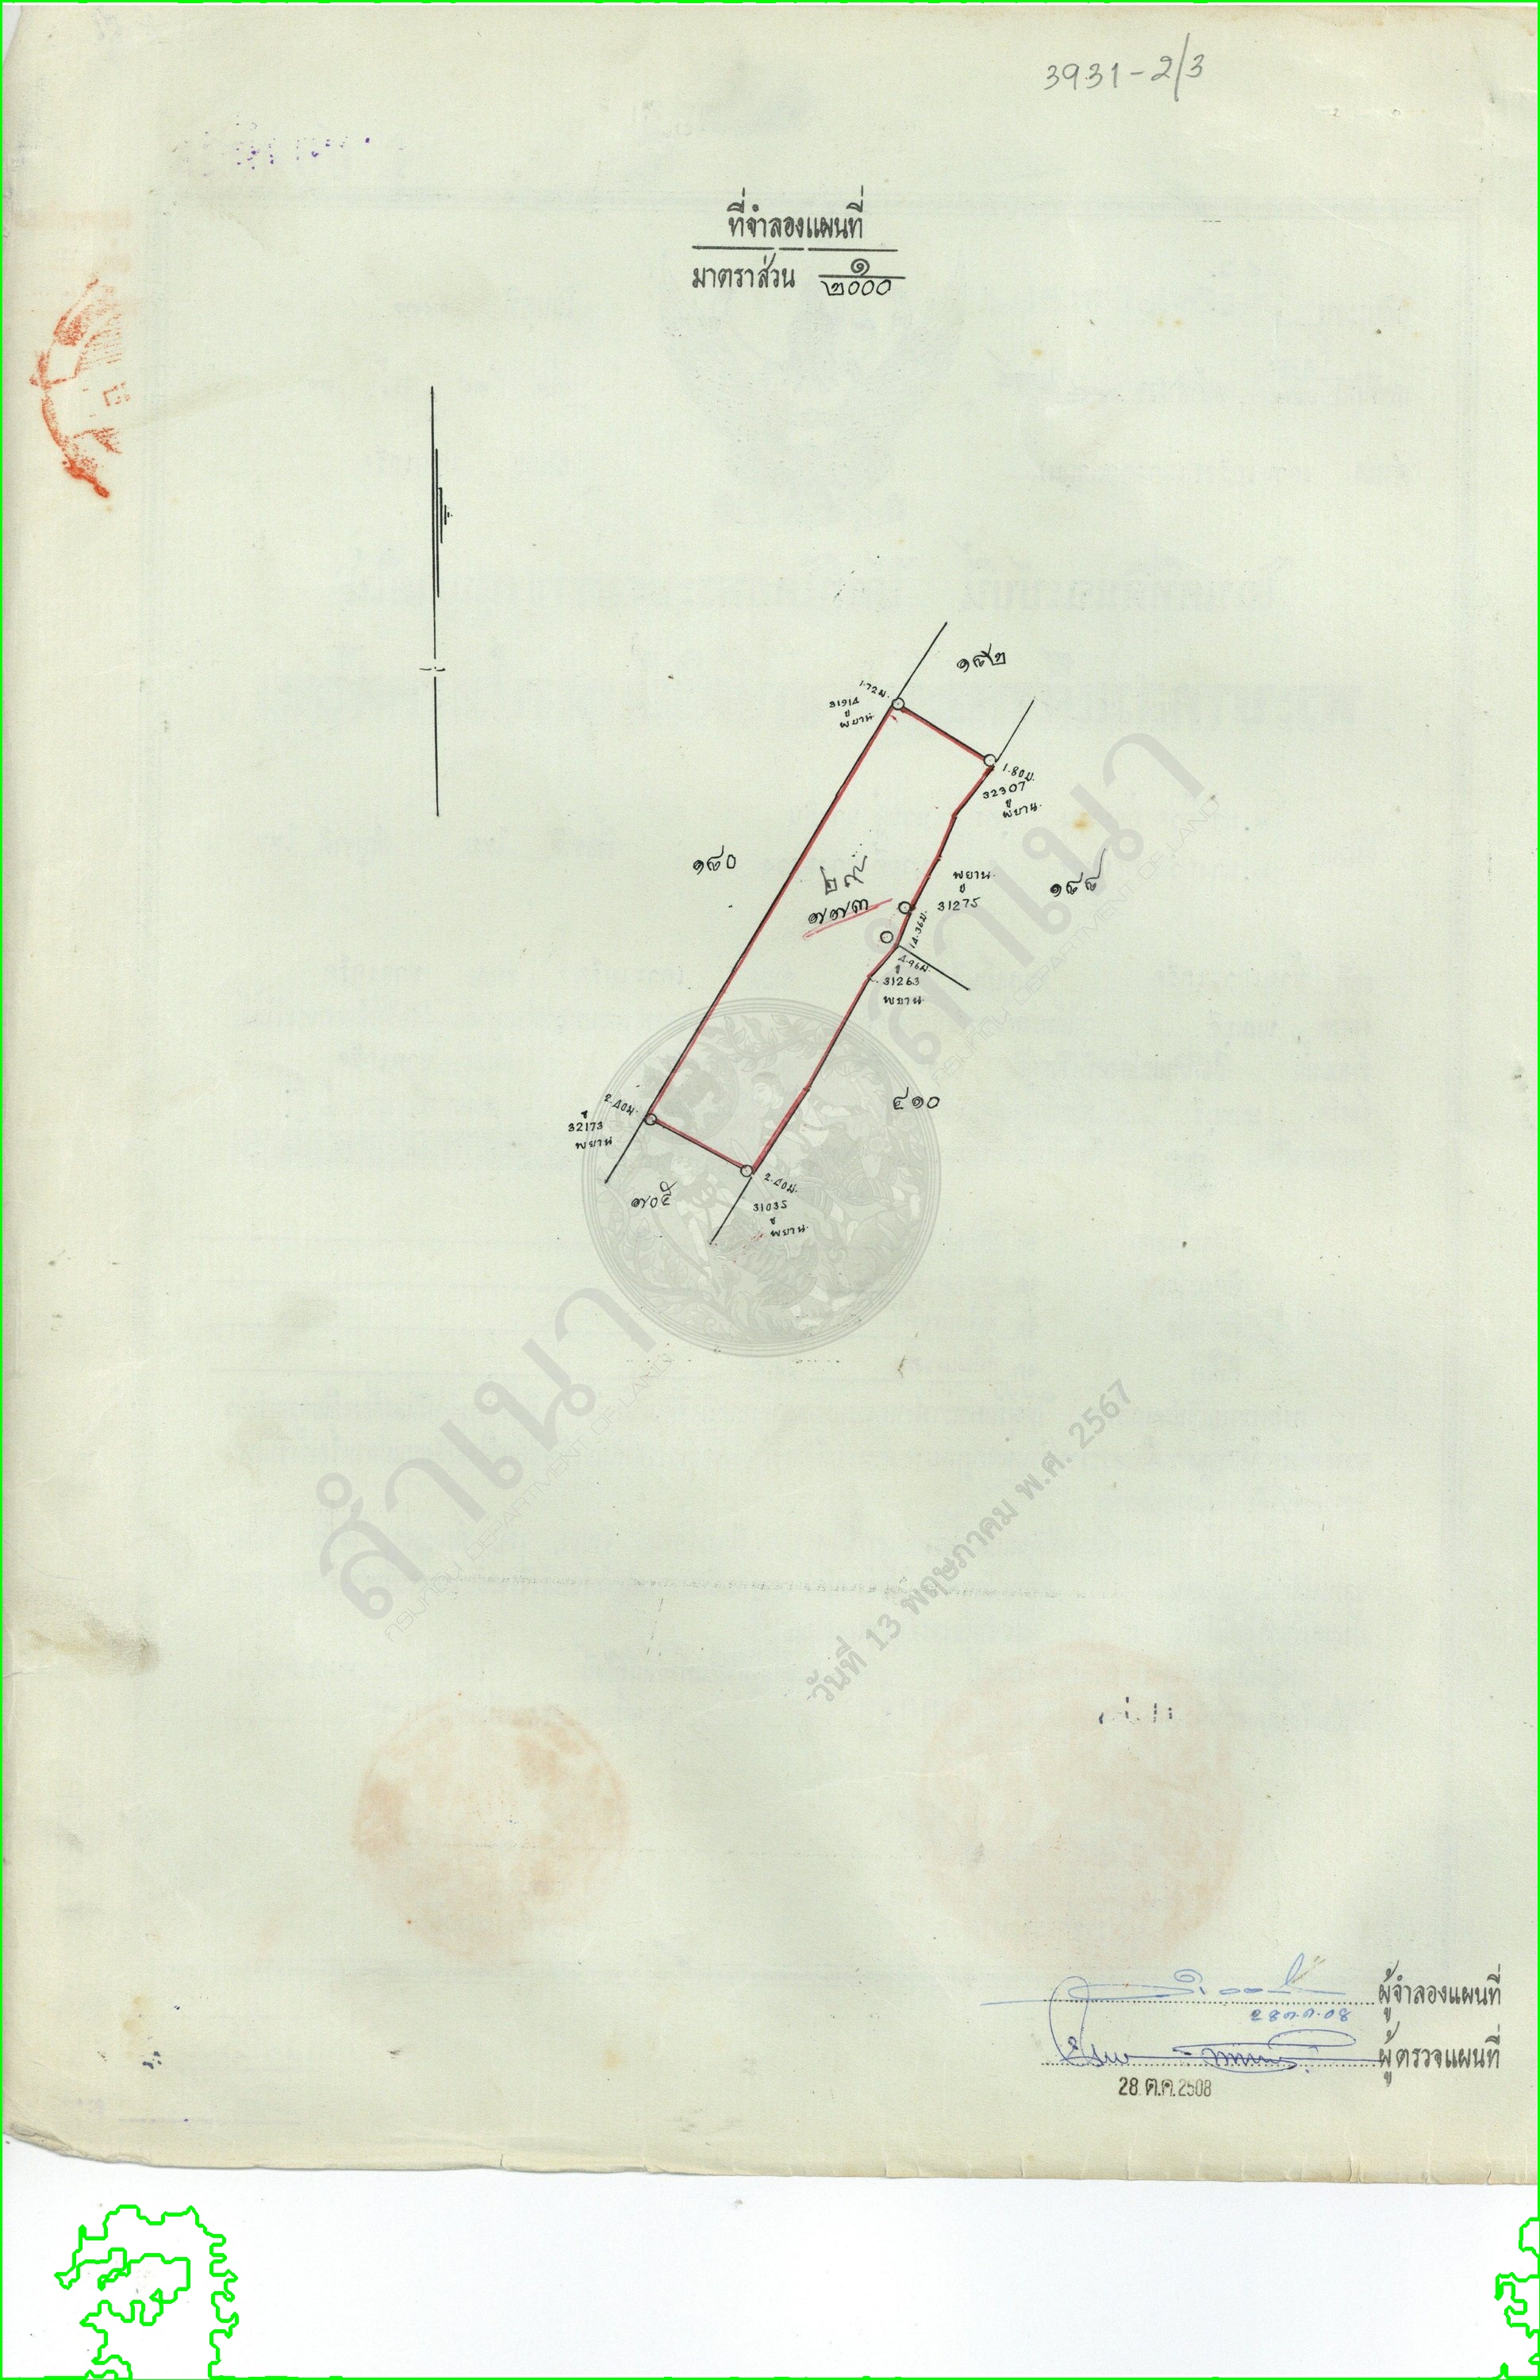 3931-2/3
ที่จำลองแผนที่
มาตราส่วน ๑
๒๐๐๐
1.72ม.
31914
พยาน
1.80ม.
32307
พยาน.
๑๘๐
พยาน.
31275
๗๗๓
14.36ม.
4.96ม.
31263
พยาน
๔๑๐
2.40ม.
32173
พยาน
๗๐๕
2.40ม.
31035
พยาน.
สำเนา
กรมที่ดิน DEPARTMENT OF LAND
สำเนา
กรมที่ดิน DEPARTMENT OF LAND
วันที่ 13 พฤษภาคม พ.ศ. 2567
ผู้จำลองแผนที่
ผู้ตรวจแผนที่
28 ต.ค. 2508